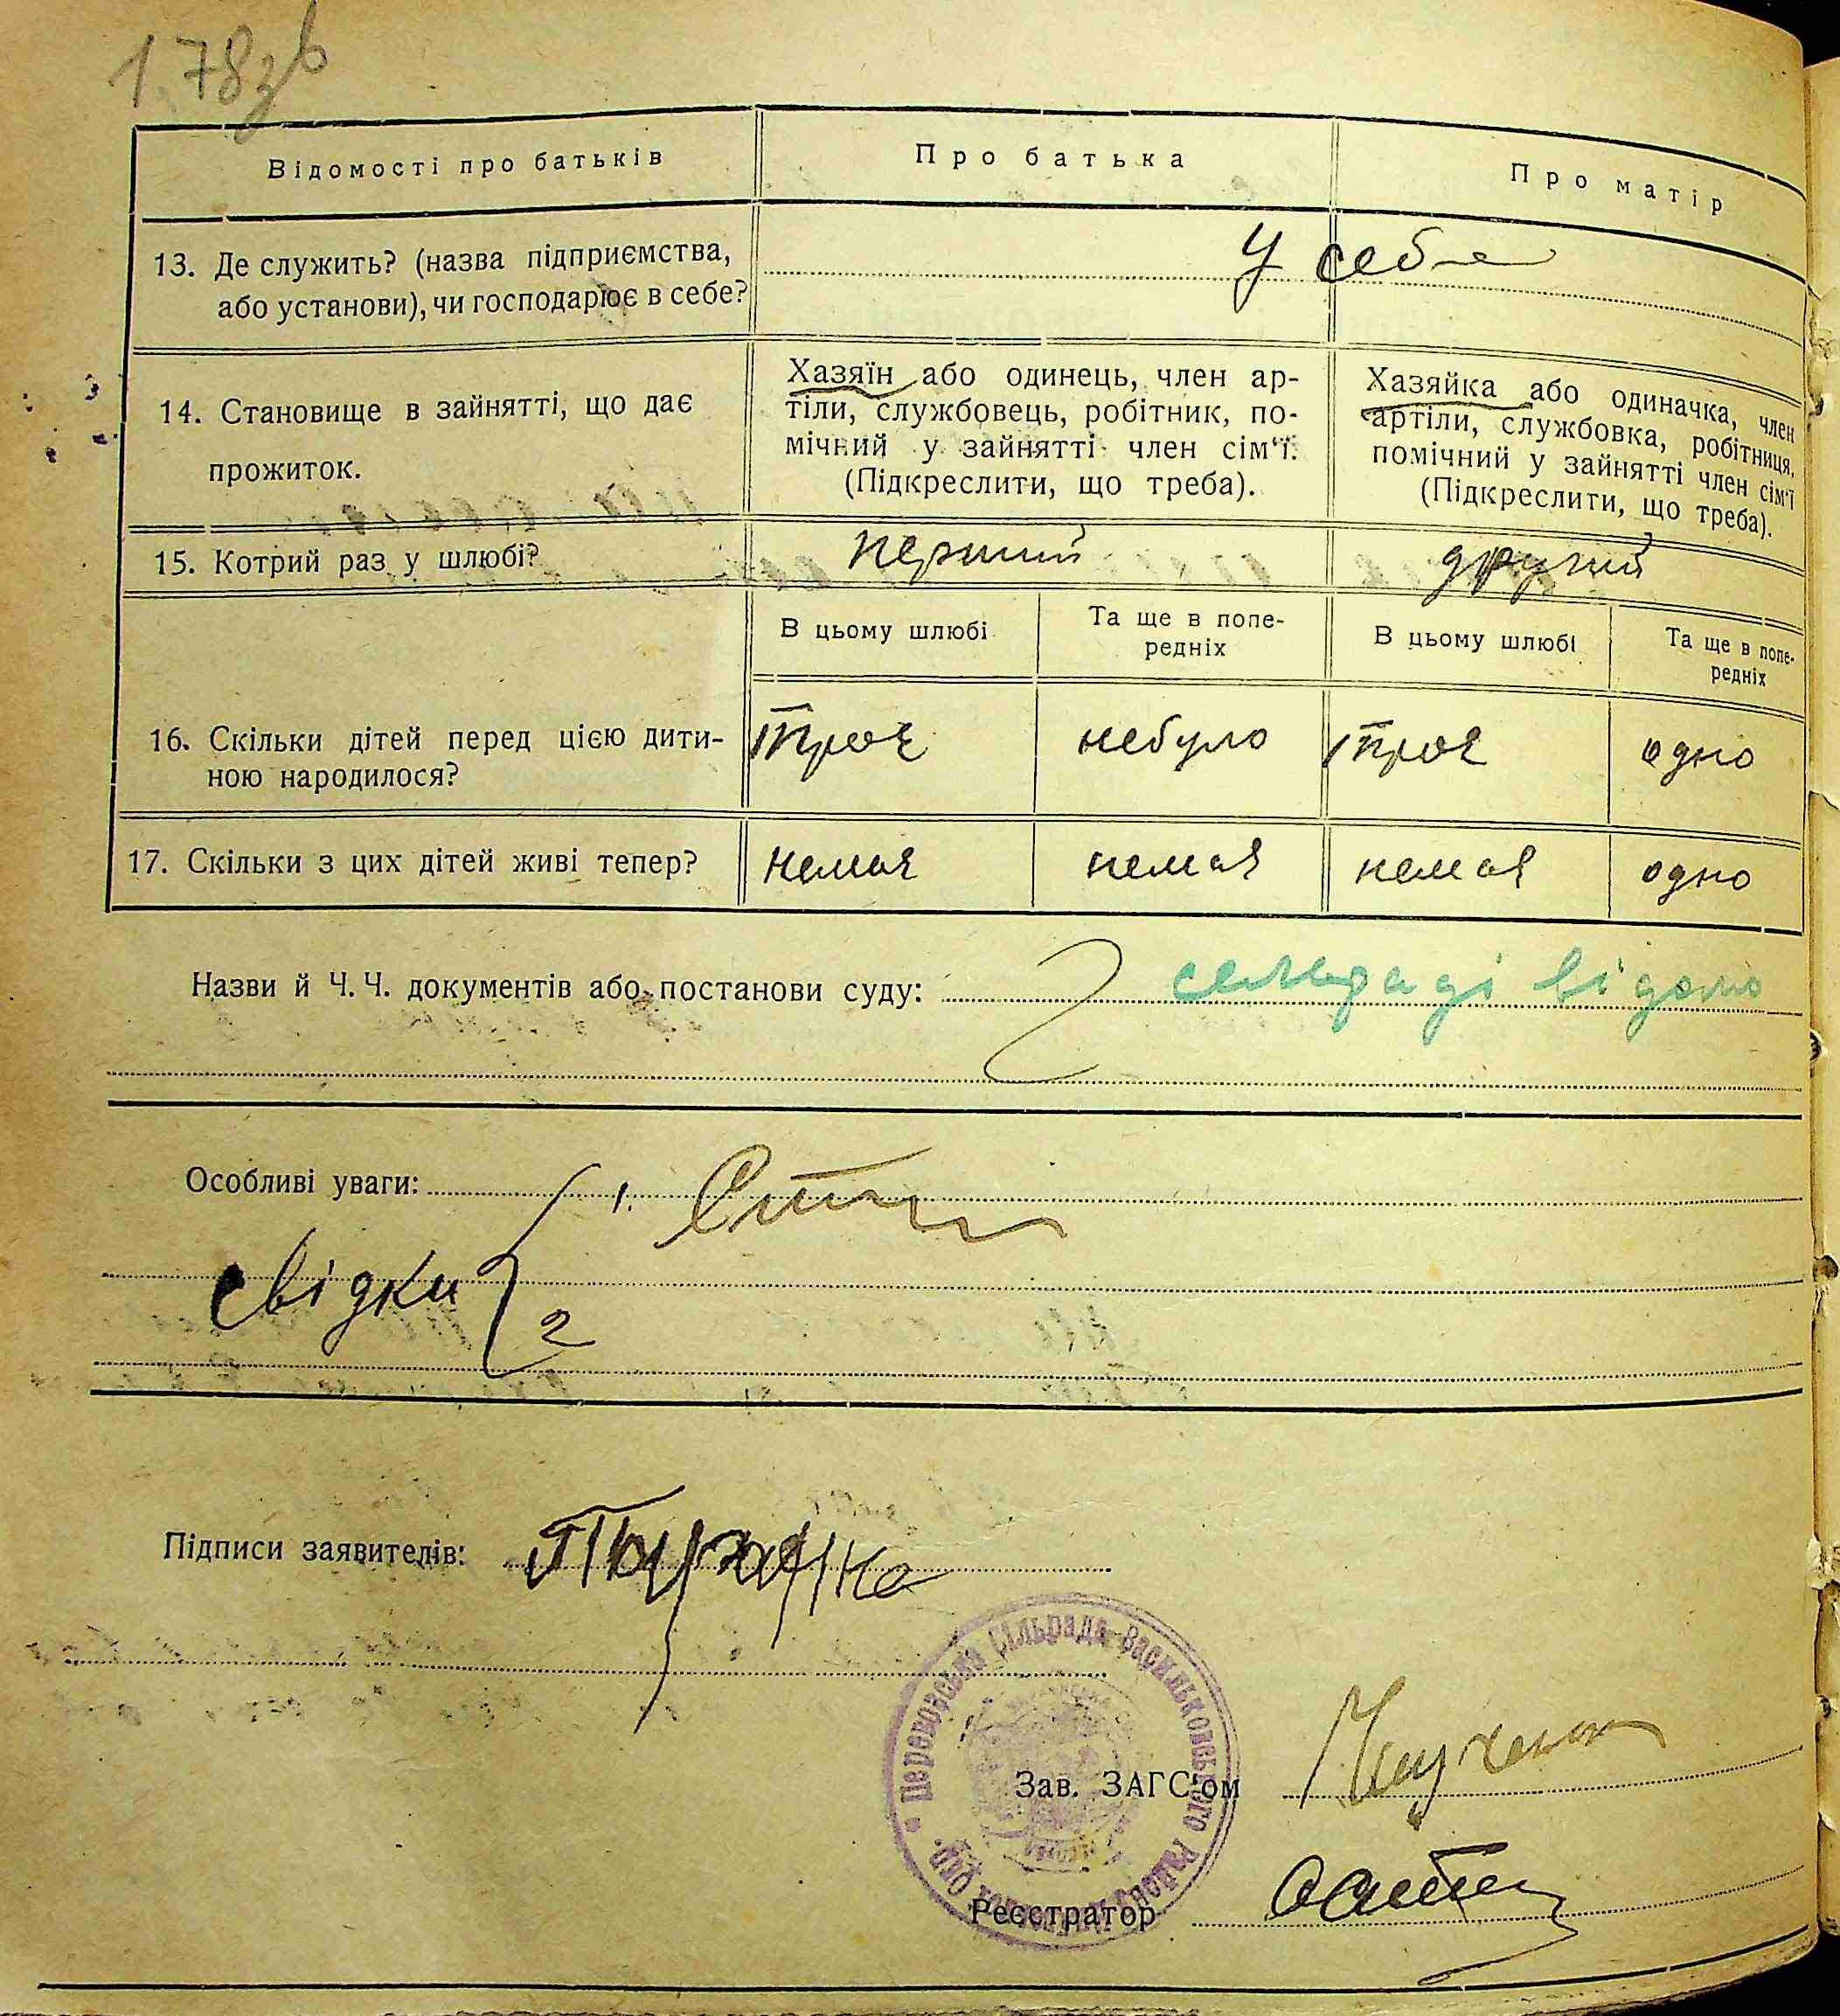 178зв
Відомості про батьків
Про батька
Про матір
13. Де служить? (назва підприємства,
або установи), чи господарює в себе?
У себе
14. Становище в зайнятті, що дає
прожиток.
Хазяїн або одинець, член ар-
тіли, службовець, робітник, по-
мічний у зайнятті член сім'ї.
(Підкреслити, що треба).
Хазяйка або одиначка, член
артіли, службовка, робітниця,
помічний у зайнятті член сім'ї
(Підкреслити, що треба).
15. Котрий раз у шлюбі?
перший
другий
В цьому шлюбі
Та ще в попе-
редніх
В цьому шлюбі
Та ще в попе-
редніх
16. Скільки дітей перед цією дити-
ною народилося?
троє
небуло
троє
одно
17. Скільки з цих дітей живі тепер?
немає
немає
немає
одно
Назви й Ч. Ч. документів або постанови суду:
сельраді відомо
Особливі уваги:
1.
свідки
2
Підписи заявителів:
Перевозська сільрада Васильковського Району
Зав. ЗАГС'ом
Реєстратор